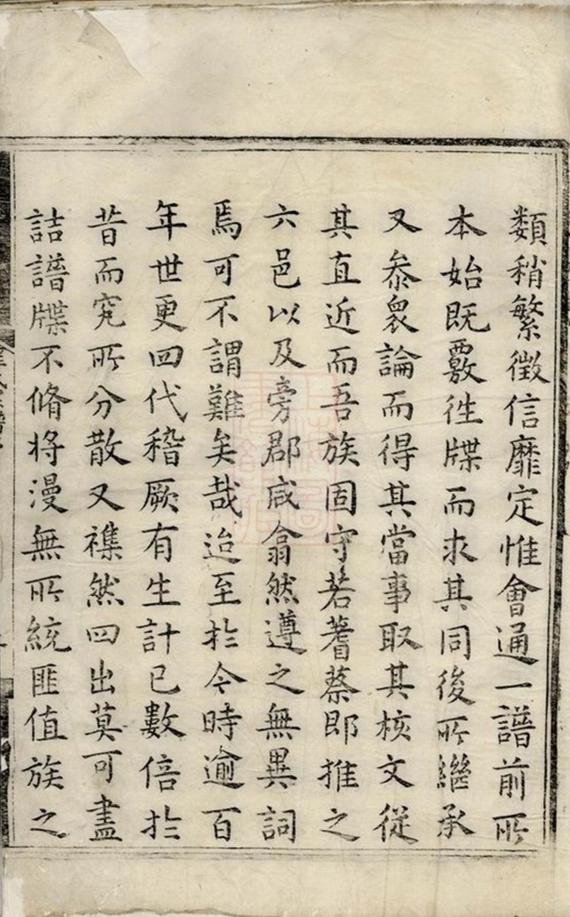 類稍繁徵信靡定惟會通一譜前所
本始既覈徃牒而求其同後所繼承
又叅衆論而得其當事取其核文從
其直近而吾族固守若蓍蔡即推之
六邑以及旁郡咸翕然遵之無異詞
焉可不謂難矣哉迨至於今時逾百
年世更四代稽厥有生計已數倍於
昔而究所分散又襍然四出莫可盡
詰譜牒不脩将漫無所統匪值族之